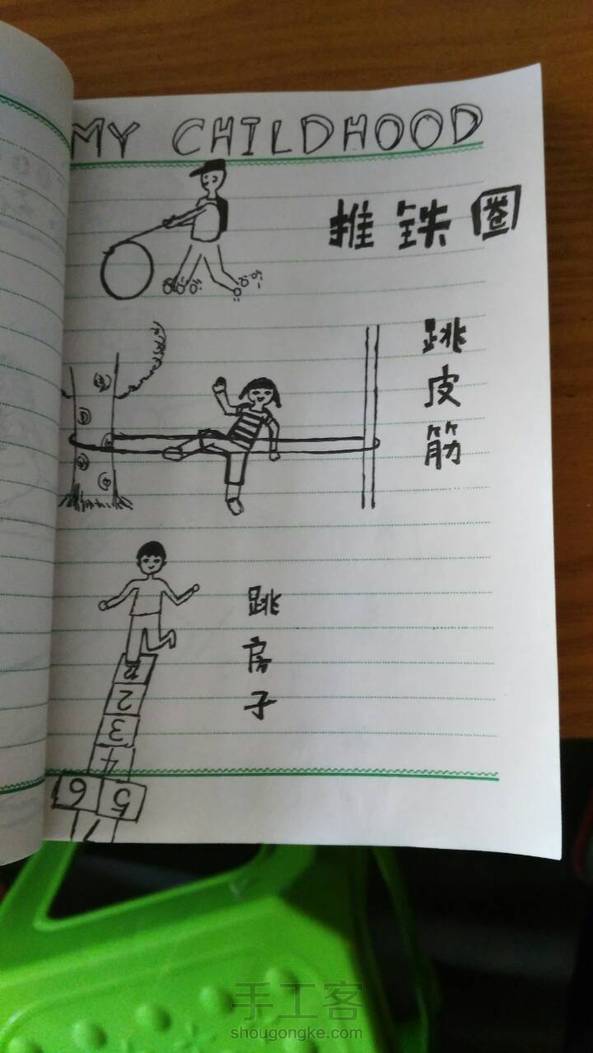 MY CHILDHOOD
推铁圈
跳皮筋
跳房子
2
3
4
6 5
7
手工客
shougongke.com